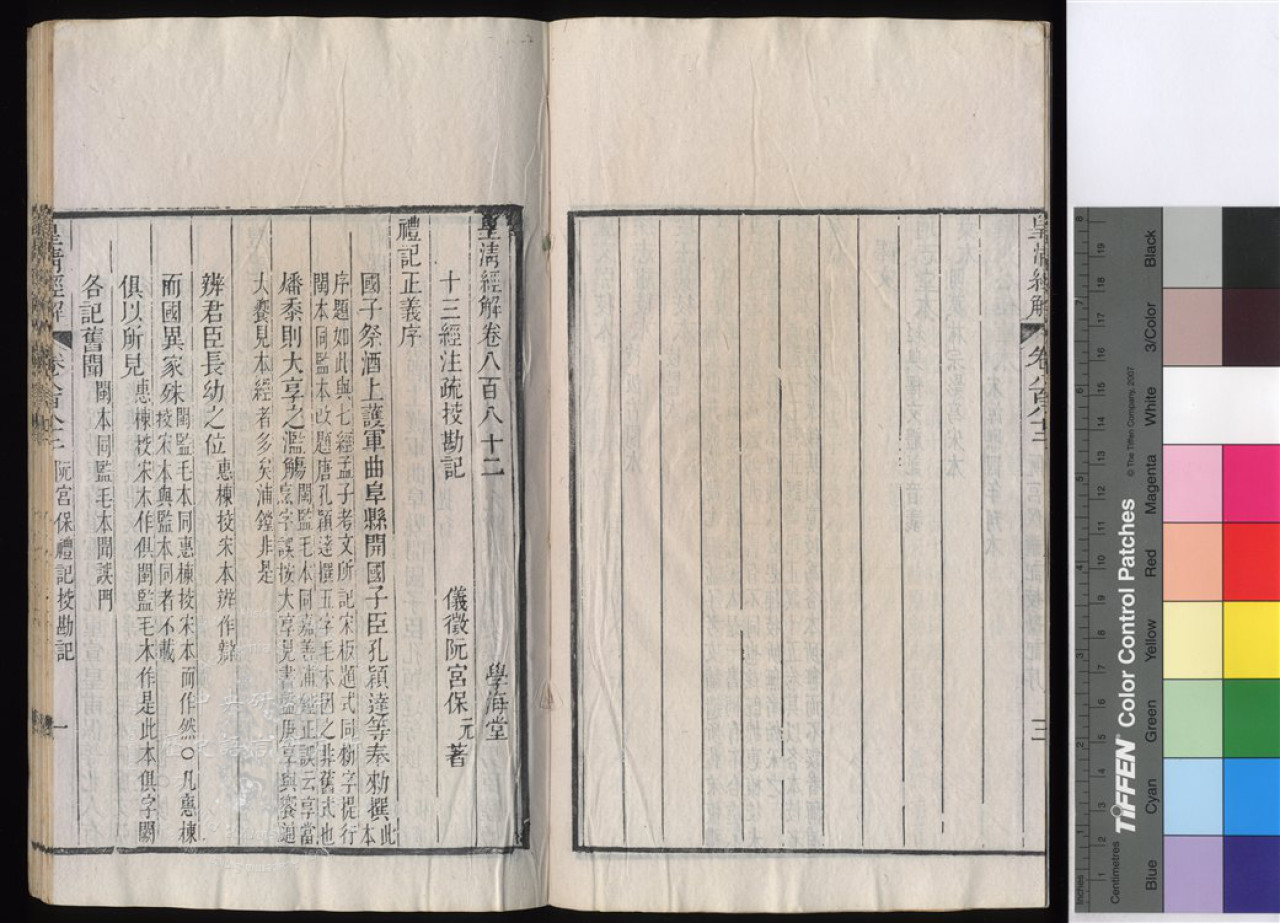 皇清經解 三
皇清經解卷八百八十二 學海堂
十三經注疏挍勘記 儀徵阮宮保元著
禮記正義序
國子祭酒上護軍曲阜縣開國子臣孔穎達等奉勑撰此本
序題如此與七經孟子考文所記宋板題式同勑字提行
閩本同監本改題唐孔穎達撰五字毛本因之非舊式也
燔黍則大享之濫觴閩監毛本同嘉善浦鏜正誤云享當
烹字誤按大享見書盤庚享與饗通
大饗見本經者多矣浦鏜非是
辨君臣長幼之位惠棟挍宋本辨作辯
而國異家殊閩監毛本同惠棟挍宋本而作然○凡惠棟
挍宋本與監本同者不載
俱以所見惠棟挍宋本作俱閩監毛本作是此本俱字闕
各記舊聞閩本同監毛本聞誤門
皇清經解 卷八百八十二 阮宮保禮記挍勘記 一
TIFFEN Color Control Patches
© The Tiffen Company, 2007
Centimetres
Inches
Blue
Cyan
Green
Yellow
Red
Magenta
White
3/Color
Black